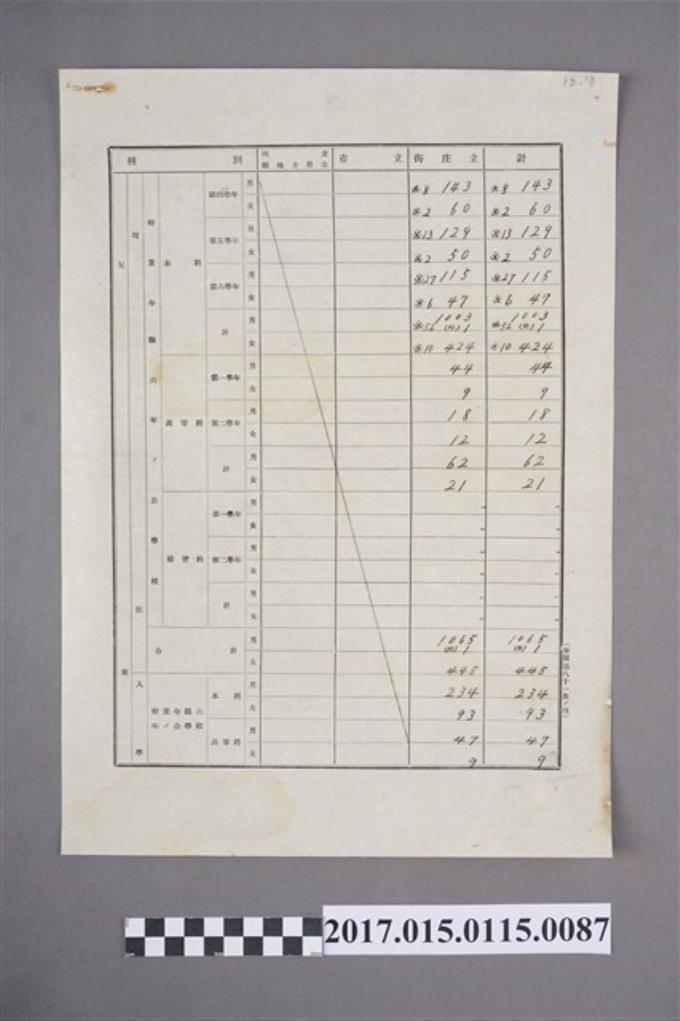 種別 市立 街庄立 計
第四學年 男 ※8 143 ※8 143
女 ※2 60 ※2 60
本科 第五學年 男 ※13 129 ※13 129
女 ※2 50 ※2 50
第六學年 男 ※27 115 ※27 115
女 ※6 47 ※6 47
計 男 ※52 1003 1 ※52 1003 1
女 ※10 424 ※10 424
第一學年 男 44 44
女 9 9
高等科 第二學年 男 18 18
女 12 12
計 男 62 62
女 21 21
第一學年 男
女
補習科 第二學年 男
女
計 男
女
合計 男 1065 1 1065 1
女 445 445
入學 修業年限六年ノ公學校 本科 男 234 234
女 93 93
高等科 男 47 47
女 9 9
現
兒
童
修業年限六年ノ公學校
2017.015.0115.0087